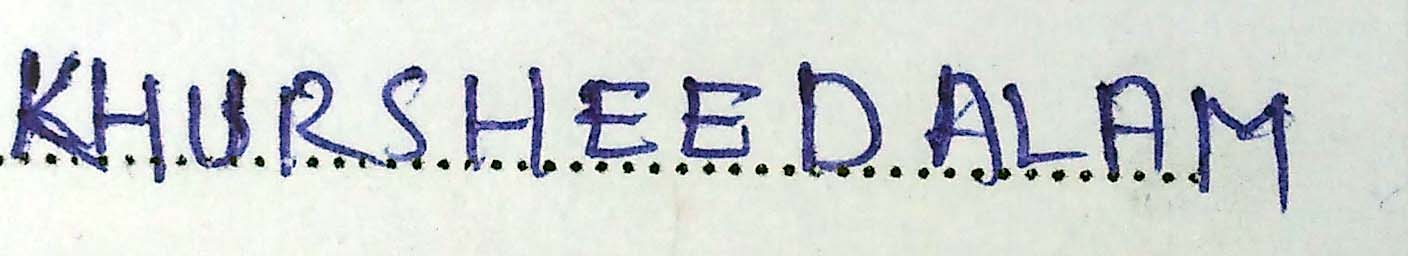 KHURSHEED ALAM